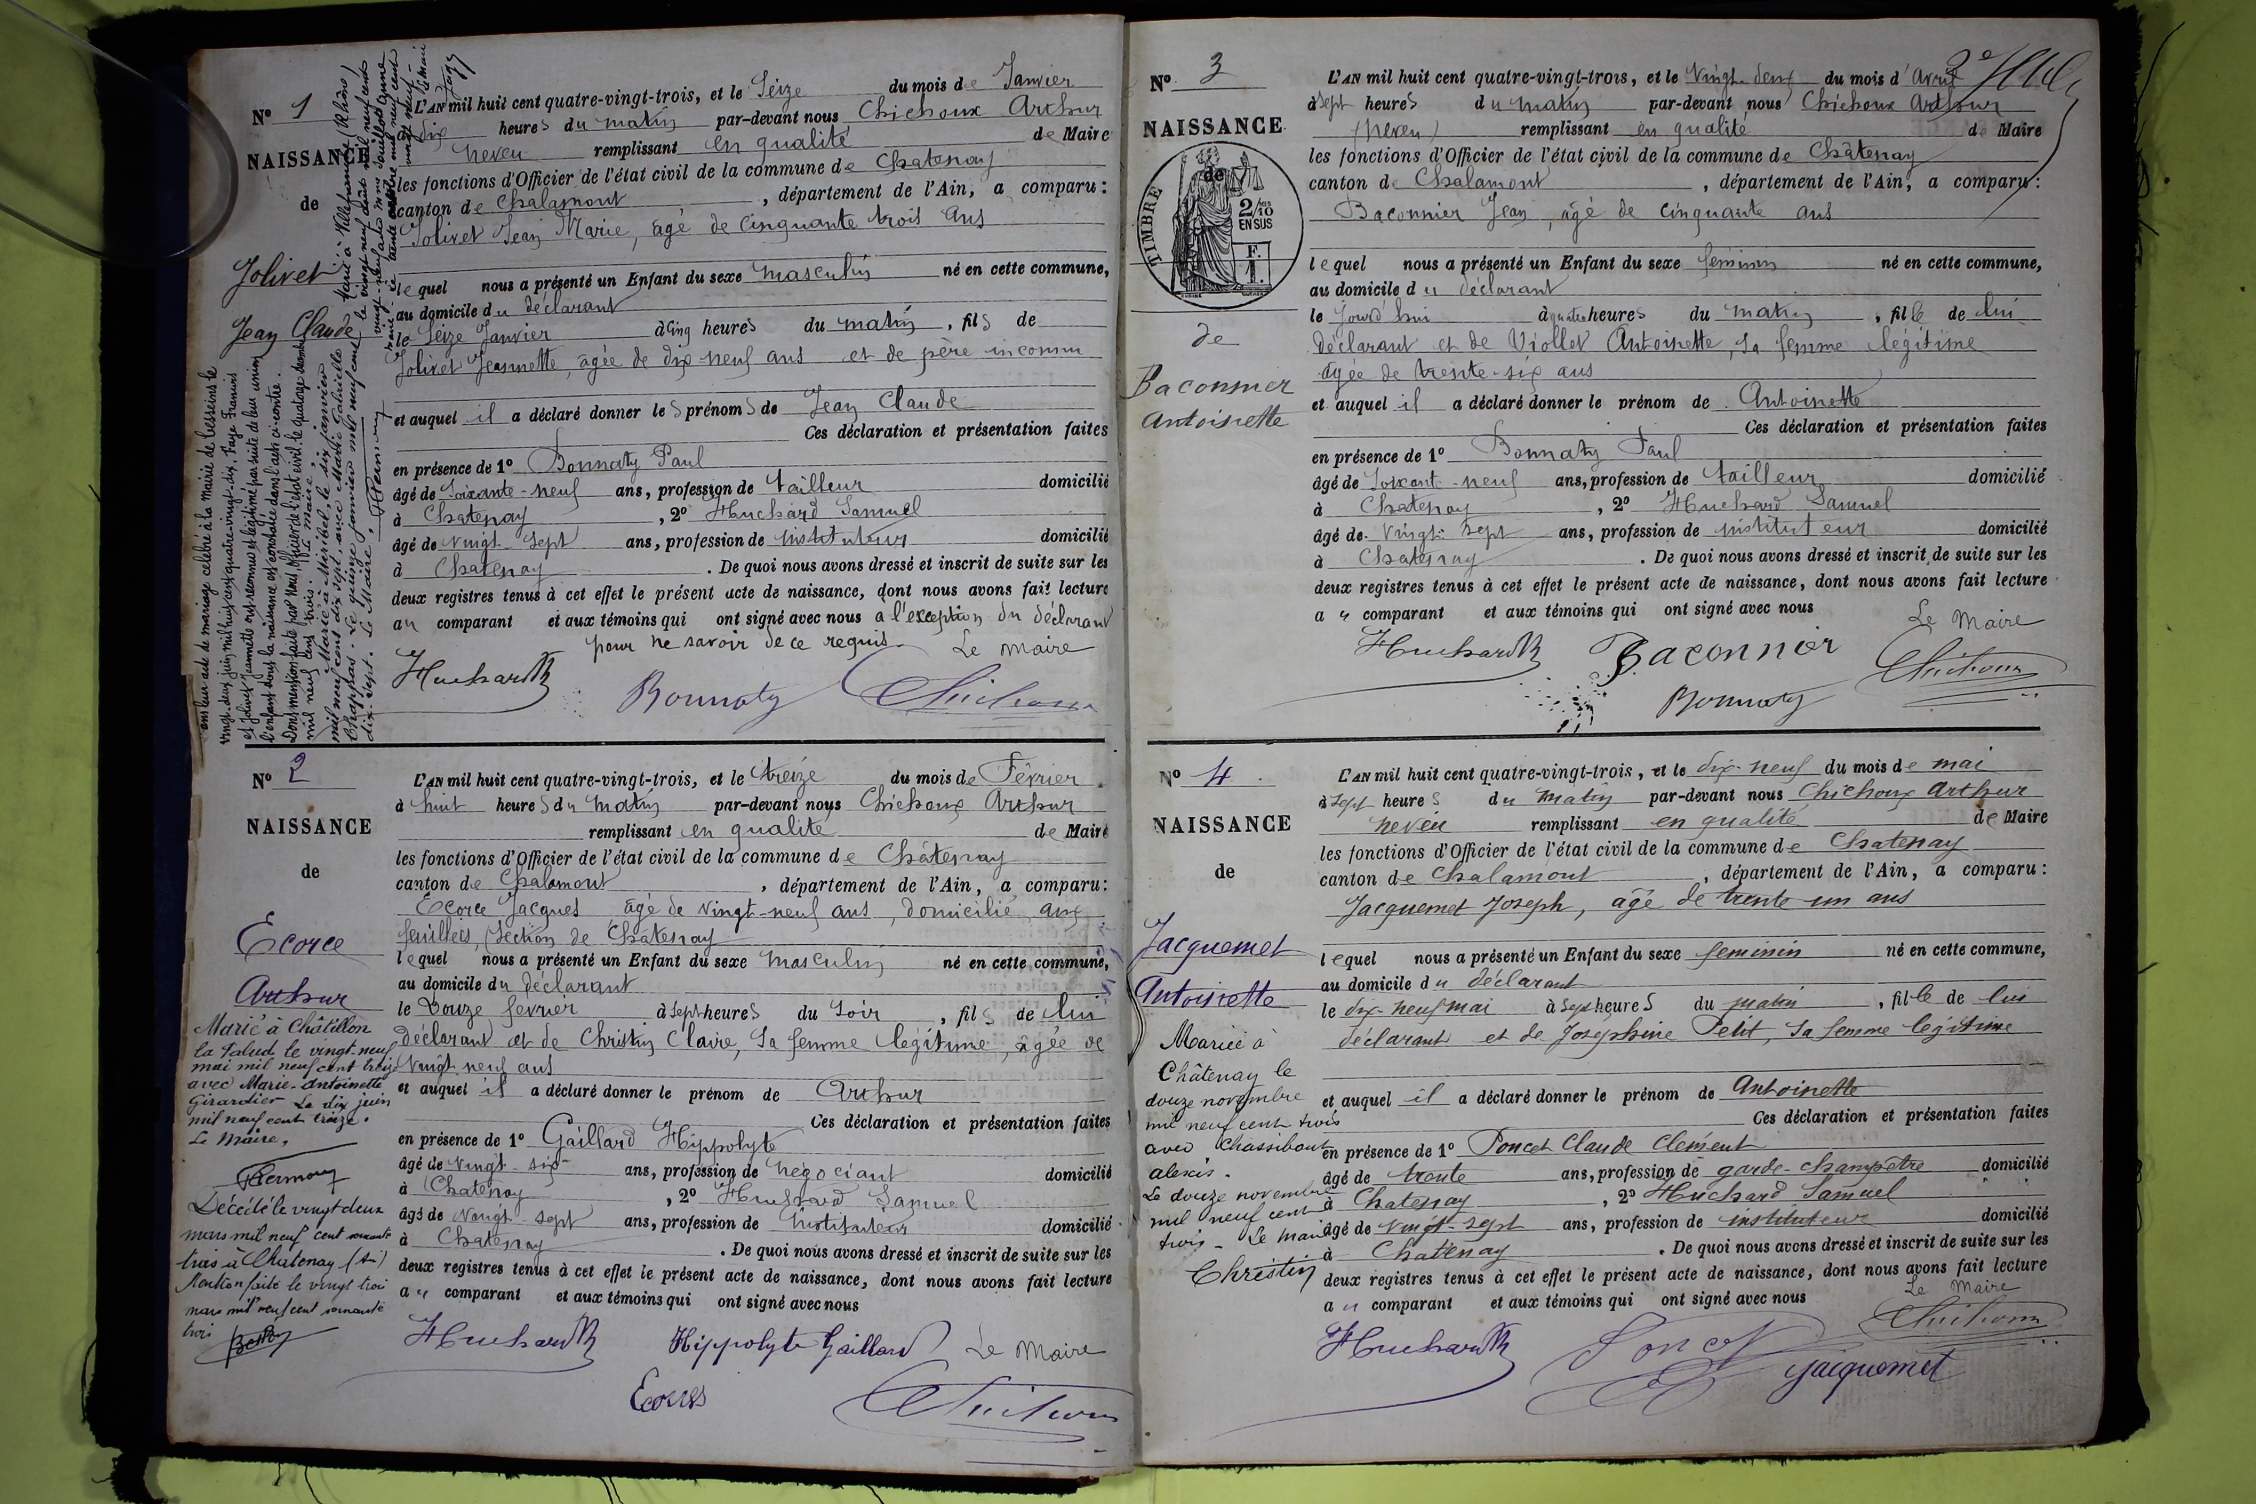 N° 1
NAISSANCE
de
Jolivet
Jean Claude
L'AN mil huit cent quatre-vingt-trois, et le Seize du mois de Janvier
dix heures du matin par-devant nous Chichoux Arthur
neveu remplissant en qualité de Maire
les fonctions d'Officier de l'état civil de la commune de Chatenay
canton de Chalamont, département de l'Ain, a comparu:
Jolivet Jean Marie, âgé de Cinquante trois ans
lequel nous a présenté un Enfant du sexe masculin né en cette commune,
au domicile du déclarant
le Seize Janvier à Cinq heures du matin, fils de
Jolivet Jeannette, âgée de dix neuf ans et de père inconnu
et auquel il a déclaré donner les prénoms de Jean Claude
Ces déclaration et présentation faites
en présence de 1° Bonnaty Paul
âgé de Soixante-neuf ans, profession de tailleur domicilié
à Chatenay, 2° Huchard Samuel
âgé de Vingt-Sept ans, profession de instituteur domicilié
à Chatenay. De quoi nous avons dressé et inscrit de suite sur les
deux registres tenus à cet effet le présent acte de naissance, dont nous avons fait lecture
au comparant et aux témoins qui ont signé avec nous à l'exception du déclarant
pour ne savoir de ce requis. Le Maire
Huchard Bonnaty Chichoux
vingt-deux juin mil huit cent quatre-vingt-dix, Page Francois
et Jolivet Jeannette ont reconnu et légitimé par suite de leur union
l'enfant dont la naissance est constatée dans l'acte ci-contre.
mil neuf cent trois. Le Maire,
Marié à Miribel, le dix janvier
mil neuf cent dix sept, avec Marie Gabrielle
Chappas. Le quinze janvier mil neuf cent
dix-sept. Le Maire,
Marié à Villefranche (Rhône)
N° 2
NAISSANCE
de
Ecorce
Arthur
Marié à Châtillon
la Palud le vingt-neuf
mai mil neuf cent treize
avec Marie-Antoinette
Girardier Le dix juin
mil neuf cent treize.
Le Maire,
Décédé le vingt deux
mars mil neuf cent soixante
trois à Chatenay (Ain)
Mention faite le vingt trois
mars mil neuf cent soixante
trois
L'AN mil huit cent quatre-vingt-trois, et le treize du mois de Février
à huit heures du matin par-devant nous Chichoux Arthur
remplissant en qualité de Maire
les fonctions d'Officier de l'état civil de la commune de Châtenay
canton de Chalamont, département de l'Ain, a comparu:
Ecorce Jacques âgé de Vingt-neuf ans, domicilié aux
feuillets, Section de Chatenay
lequel nous a présenté un Enfant du sexe masculin né en cette commune,
au domicile du déclarant
le Douze février à Sept heures du Soir, fils de lui
déclarant et de Christin Claire, Sa femme légitime, âgée de
Vingt neuf ans
et auquel il a déclaré donner le prénom de Arthur
Ces déclaration et présentation faites
en présence de 1° Gaillard Hippolyte
âgé de Vingt-six ans, profession de négociant domicilié
à Chatenay, 2° Huchard Samuel
âgé de Vingt-sept ans, profession de Instituteur domicilié
à Chatenay. De quoi nous avons dressé et inscrit de suite sur les
deux registres tenus à cet effet le présent acte de naissance, dont nous avons fait lecture
au comparant et aux témoins qui ont signé avec nous
Huchard Hippolyte Gaillard Le Maire
Ecorces Chichoux
N° 3
NAISSANCE
de
TIMBRE
2/10
EN SUS
de
Baconnier
Antoinette
L'AN mil huit cent quatre-vingt-trois, et le Vingt-deux du mois d'Avril
à Sept heures du matin par-devant nous Chichoux Arthur
(neveu) remplissant en qualité de Maire
les fonctions d'Officier de l'état civil de la commune de Châtenay
canton de Chalamont, département de l'Ain, a comparu:
Baconnier Jean, âgé de Cinquante ans
lequel nous a présenté un Enfant du sexe féminin né en cette commune,
au domicile du déclarant
le Jourd'hui à quatre heures du matin, fille de lui
déclarant et de Viollet Antoinette, Sa femme légitime
âgée de trente-six ans
et auquel il a déclaré donner le prénom de Antoinette
Ces déclaration et présentation faites
en présence de 1° Bonnaty Paul
âgé de Soixant-neuf ans, profession de tailleur domicilié
à Chatenay, 2° Huchard Samuel
âgé de Vingt-sept ans, profession de instituteur domicilié
à Chatenay. De quoi nous avons dressé et inscrit de suite sur les
deux registres tenus à cet effet le présent acte de naissance, dont nous avons fait lecture
au comparant et aux témoins qui ont signé avec nous
Le Maire
Huchard Baconnier Chichoux
Bonnaty
N° 4
NAISSANCE
de
Jacquemet
Antoinette
Mariée à
Châtenay le
douze novembre
mil neuf cent trois
avec Chassibout
alexis.
Le douze novembre
mil neuf cent
trois - Le Maire
Christin
L'AN mil huit cent quatre-vingt-trois, et le dix-neuf du mois de mai
à Sept heures du matin par-devant nous Chichoux Arthur
neveu remplissant en qualité de Maire
les fonctions d'Officier de l'état civil de la commune de Chatenay
canton de Chalamont, département de l'Ain, a comparu:
Jacquemet Joseph, âgé de trente-un ans
lequel nous a présenté un Enfant du sexe feminin né en cette commune,
au domicile du déclarant
le dix-neuf mai à Sept heures du matin, fille de lui
déclarant et de Joséphine Petit, Sa femme légitime
et auquel il a déclaré donner le prénom de Antoinette
Ces déclaration et présentation faites
en présence de 1° Poncet Claude Clément
âgé de trente ans, profession de garde-champêtre domicilié
à Chatenay, 2° Huchard Samuel
âgé de Vingt-sept ans, profession de instituteur domicilié
à Chatenay. De quoi nous avons dressé et inscrit de suite sur les
deux registres tenus à cet effet le présent acte de naissance, dont nous avons fait lecture
au comparant et aux témoins qui ont signé avec nous
Le Maire
Huchard Poncet Chichoux
Jacquemet